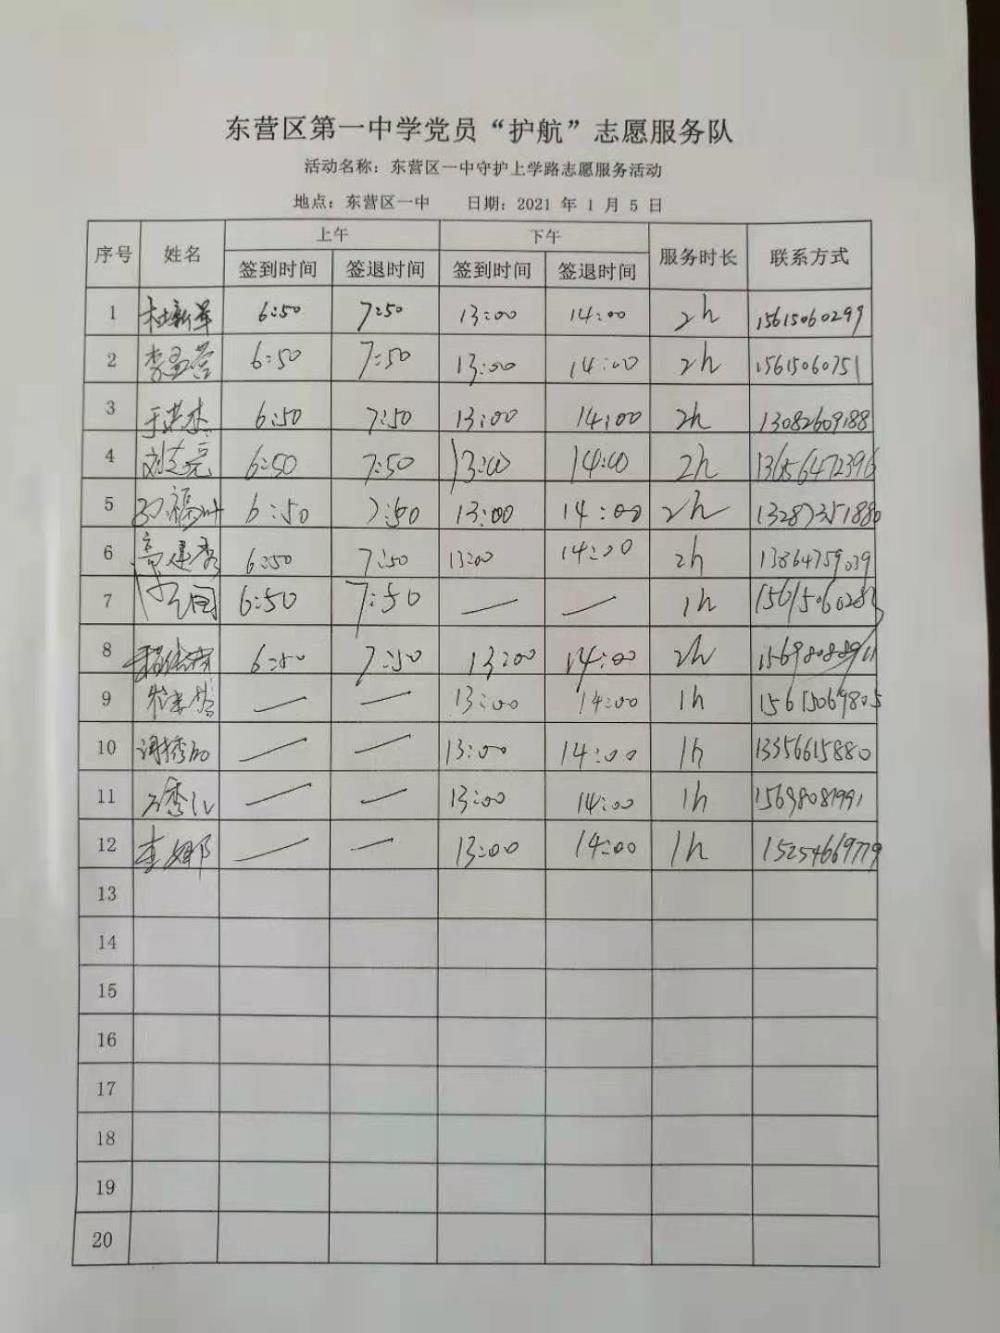 东营区第一中学党员“护航”志愿服务队
活动名称：东营区一中守护上学路志愿服务活动
地点：东营区一中 日期：2021 年 1 月 5 日
序号 姓名 上午 下午 服务时长 联系方式
签到时间 签退时间 签到时间 签退时间
1 杜新军 6:50 7:50 13:00 14:00 2h 15615060299
2 李孟营 6:50 7:50 13:00 14:00 2h 15615060751
3 于洪杰 6:50 7:50 13:00 14:00 2h 13082609188
4 刘志亮 6:50 7:50 13:00 14:00 2h 13656472396
5 6:50 7:50 13:00 14:00 2h 13287351880
6 高建秀 6:50 7:50 13:00 14:00 2h 13864759039
7 6:50 7:50 — — 1h
8 6:50 7:50 13:00 14:00 2h 15698088911
9 — — 13:00 14:00 1h 15615069805
10 — — 13:00 14:00 1h 13356615880
11 — — 13:00 14:00 1h 15698081991
12 李娜 — — 13:00 14:00 1h 15254669779
13
14
15
16
17
18
19
20